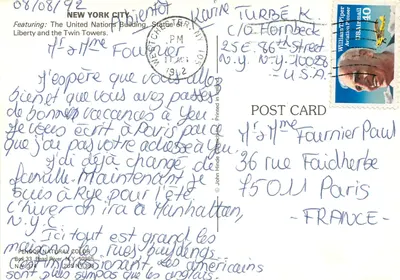 08/08/92
A bientôt Karine
TURBÉ K.
C/O Hornbeck
25 E. 86th Street
N.Y. N.Y 10028
- U.S.A.
NEW YORK CITY
Featuring: The United Nations Building, Statue of
Liberty and the Twin Towers.
Mr et Mme Fournier
J'espère que vous allez
bien et que vous avez passés
de bonnes vacances à Yeu.
Je vous écrit à Paris parce
que j'ai pas votre adresse à Yeu.
J'ai déjà changé de
famille. Maintenant je
suis à Rye pour l'été.
L'hiver on ira à Manhattan,
N.Y.
Ici tout est grand les
maisons, les rues, buildings
c'est impressionant. les américains
sont plus sympas que les anglais.
WESTCHESTER NY 105
PM
1992
William T. Piper
Aviation Pioneer
US Airmail
40
POST CARD
Mr et Mme Fournier Paul
36 rue Faidherbe
75011 Paris
- FRANCE -
© John Hinde